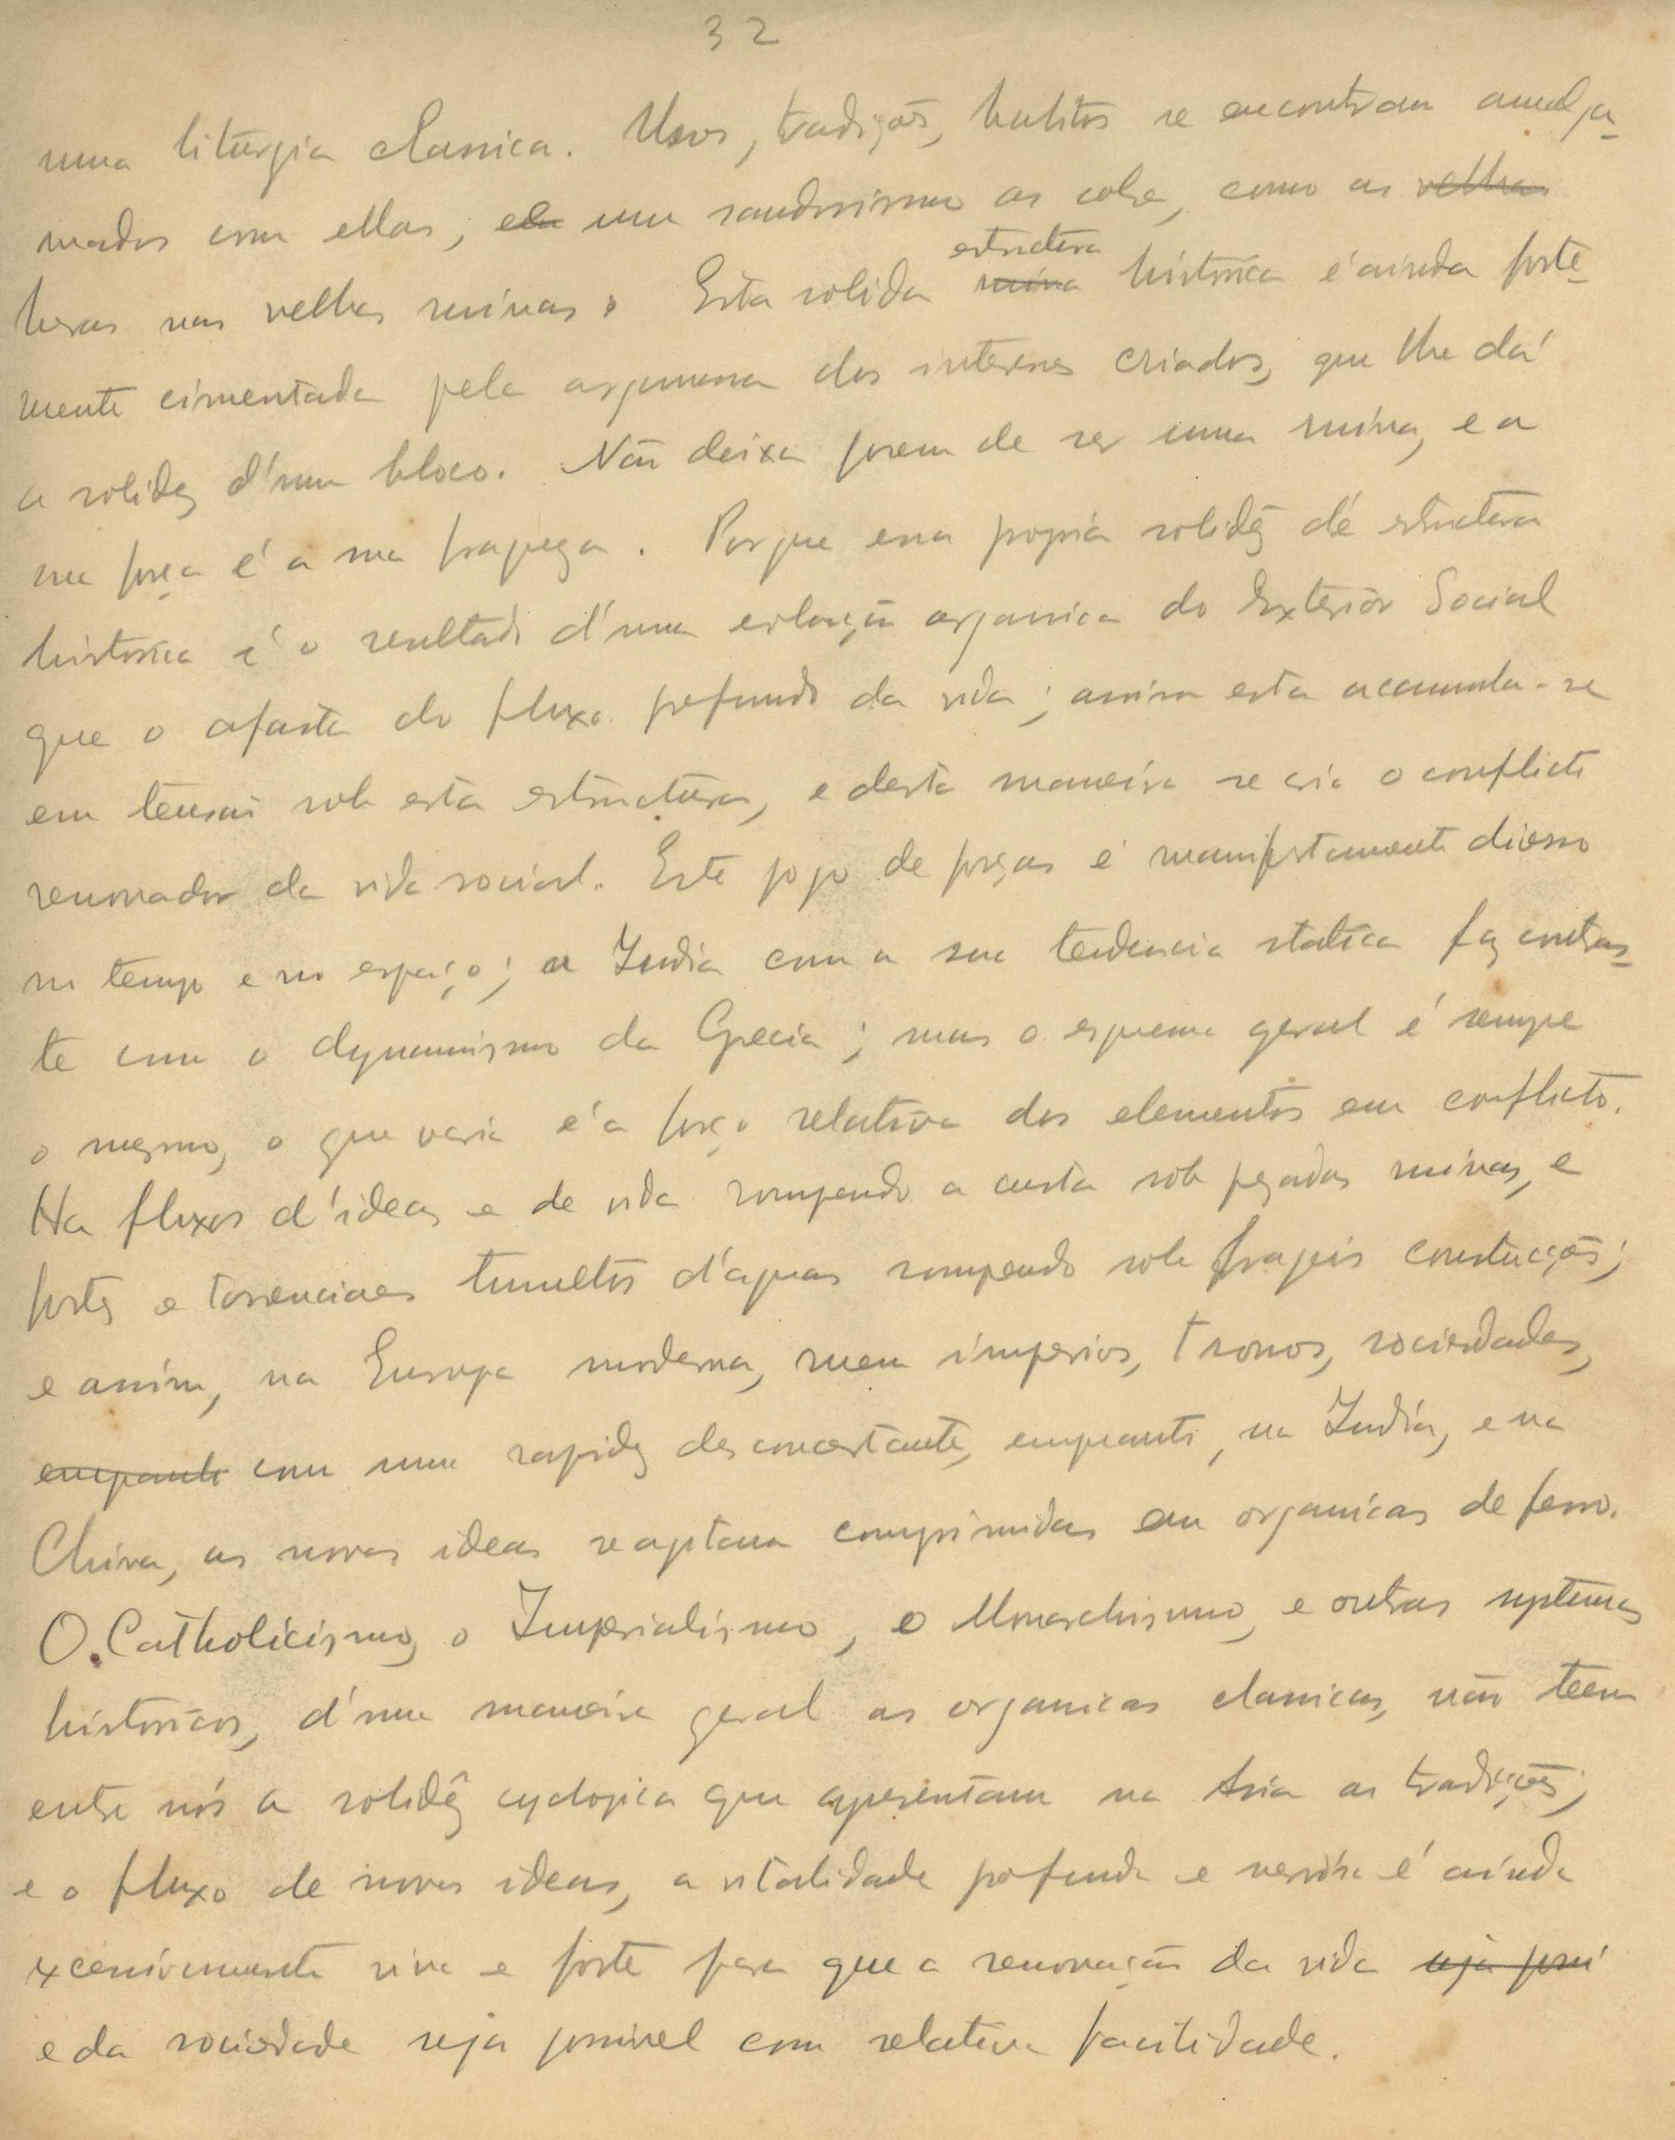 32
uma liturgia classica. Usos, tradiçoēs, habitos se encontram amalga-
mados com ellas; ela um saudosismo as cobre, como as velhas
heras nas velhas ruinas. Esta solida ruina estructura historica é ainda forte-
mente cimentada pela argamassa dos interesses criados, que lhe dá
a solidez d'um bloco. Não deixa porem de ser uma ruina, e a
sua força é a sua fraqueza. Porque essa propria solidêz de estructura
historica é o resultado d'uma evolução organica do Exterior Social
que o afasta do fluxo profundo da vida; assim esta accumula-se
em tensão sob esta estructura, e desta maneira se cria o conflicto
renovador da vida social. Este jogo de forças é manifestamente diverso
no tempo e no espaço; a India com a sua tendencia statica faz contras-
te com o dynamismo da Grecia; mas o esquema geral é sempre
o mesmo, o que varia é a força relativa dos elementos em conflicto.
Ha fluxos d'ideas e de vida rompendo a custo sob pezadas ruinas, e
fortes e torrenciaes tumultos d'aguas rompendo sob frageis construcções;
e assim, na Europa moderna, ruem imperios, tronos, sociedades,
emquanto com uma rapidez desconcertante, emquanto, na India, e na
China, as novas ideas se agitam comprimidas em organicas de ferro.
O Catholicismo, o Imperialismo, o Monarchismo, e outros systemas
historicos, d'uma maneira geral as organicas classicas, não teem
entre nós a solidêz cyclopica que apresentam na Asia as tradições;
e o fluxo de novas ideas, a vitalidade profunda e é ainda
excessivamente viva e forte para que a renovação da vida seja possi
e da sociedade seja possivel com relativa facilidade.